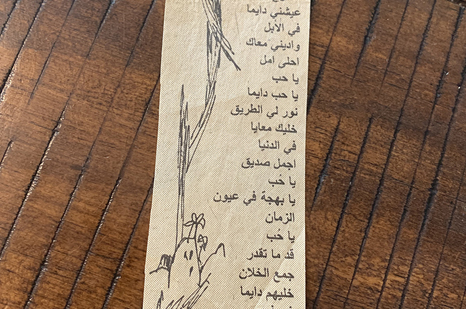 عيشني دايما
في الأيل
واديني معاك
احلى امل
يا حب
يا حب دايما
نور لي الطريق
خليك معايا
في الدنيا
اجمل صديق
يا حُب
يا بهجة في عيون
الزمان
يا حُب
قد ما تقدر
جمع الخلان
خليهم دايما